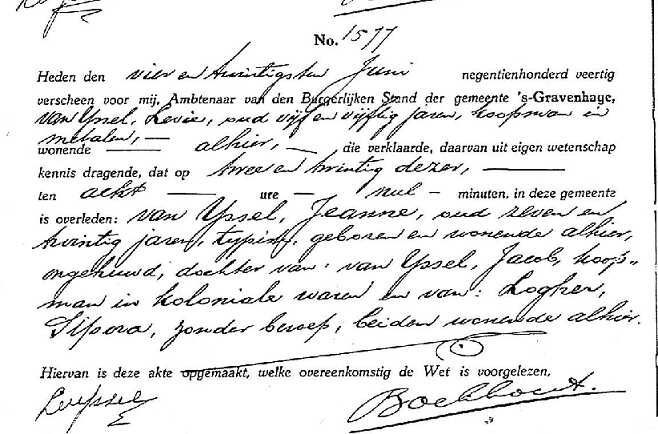 No. 1577
Heden den vier en twintigsten Juni negentienhonderd veertig
verscheen voor mij, Ambtenaar van den Burgerlijken Stand der gemeente 's-Gravenhage,
van Yssel, Levie, oud vijf en vijftig jaren, koopman in
metalen, —
wonende — alhier, — die verklaarde, daarvan uit eigen wetenschap
kennis dragende, dat op twee en twintig dezer, —
ten acht — ure — nul — minuten, in deze gemeente
is overleden: van Yssel, Jeanne, oud zeven en
twintig jaren, typiste, geboren en wonende alhier,
ongehuwd, dochter van: van Yssel, Jacob, koop=
man in koloniale waren en van: Logher,
Sipora, zonder beroep, beiden wonende alhier.
Hiervan is deze akte opgemaakt, welke overeenkomstig de Wet is voorgelezen.
LvYssel Boekhout.